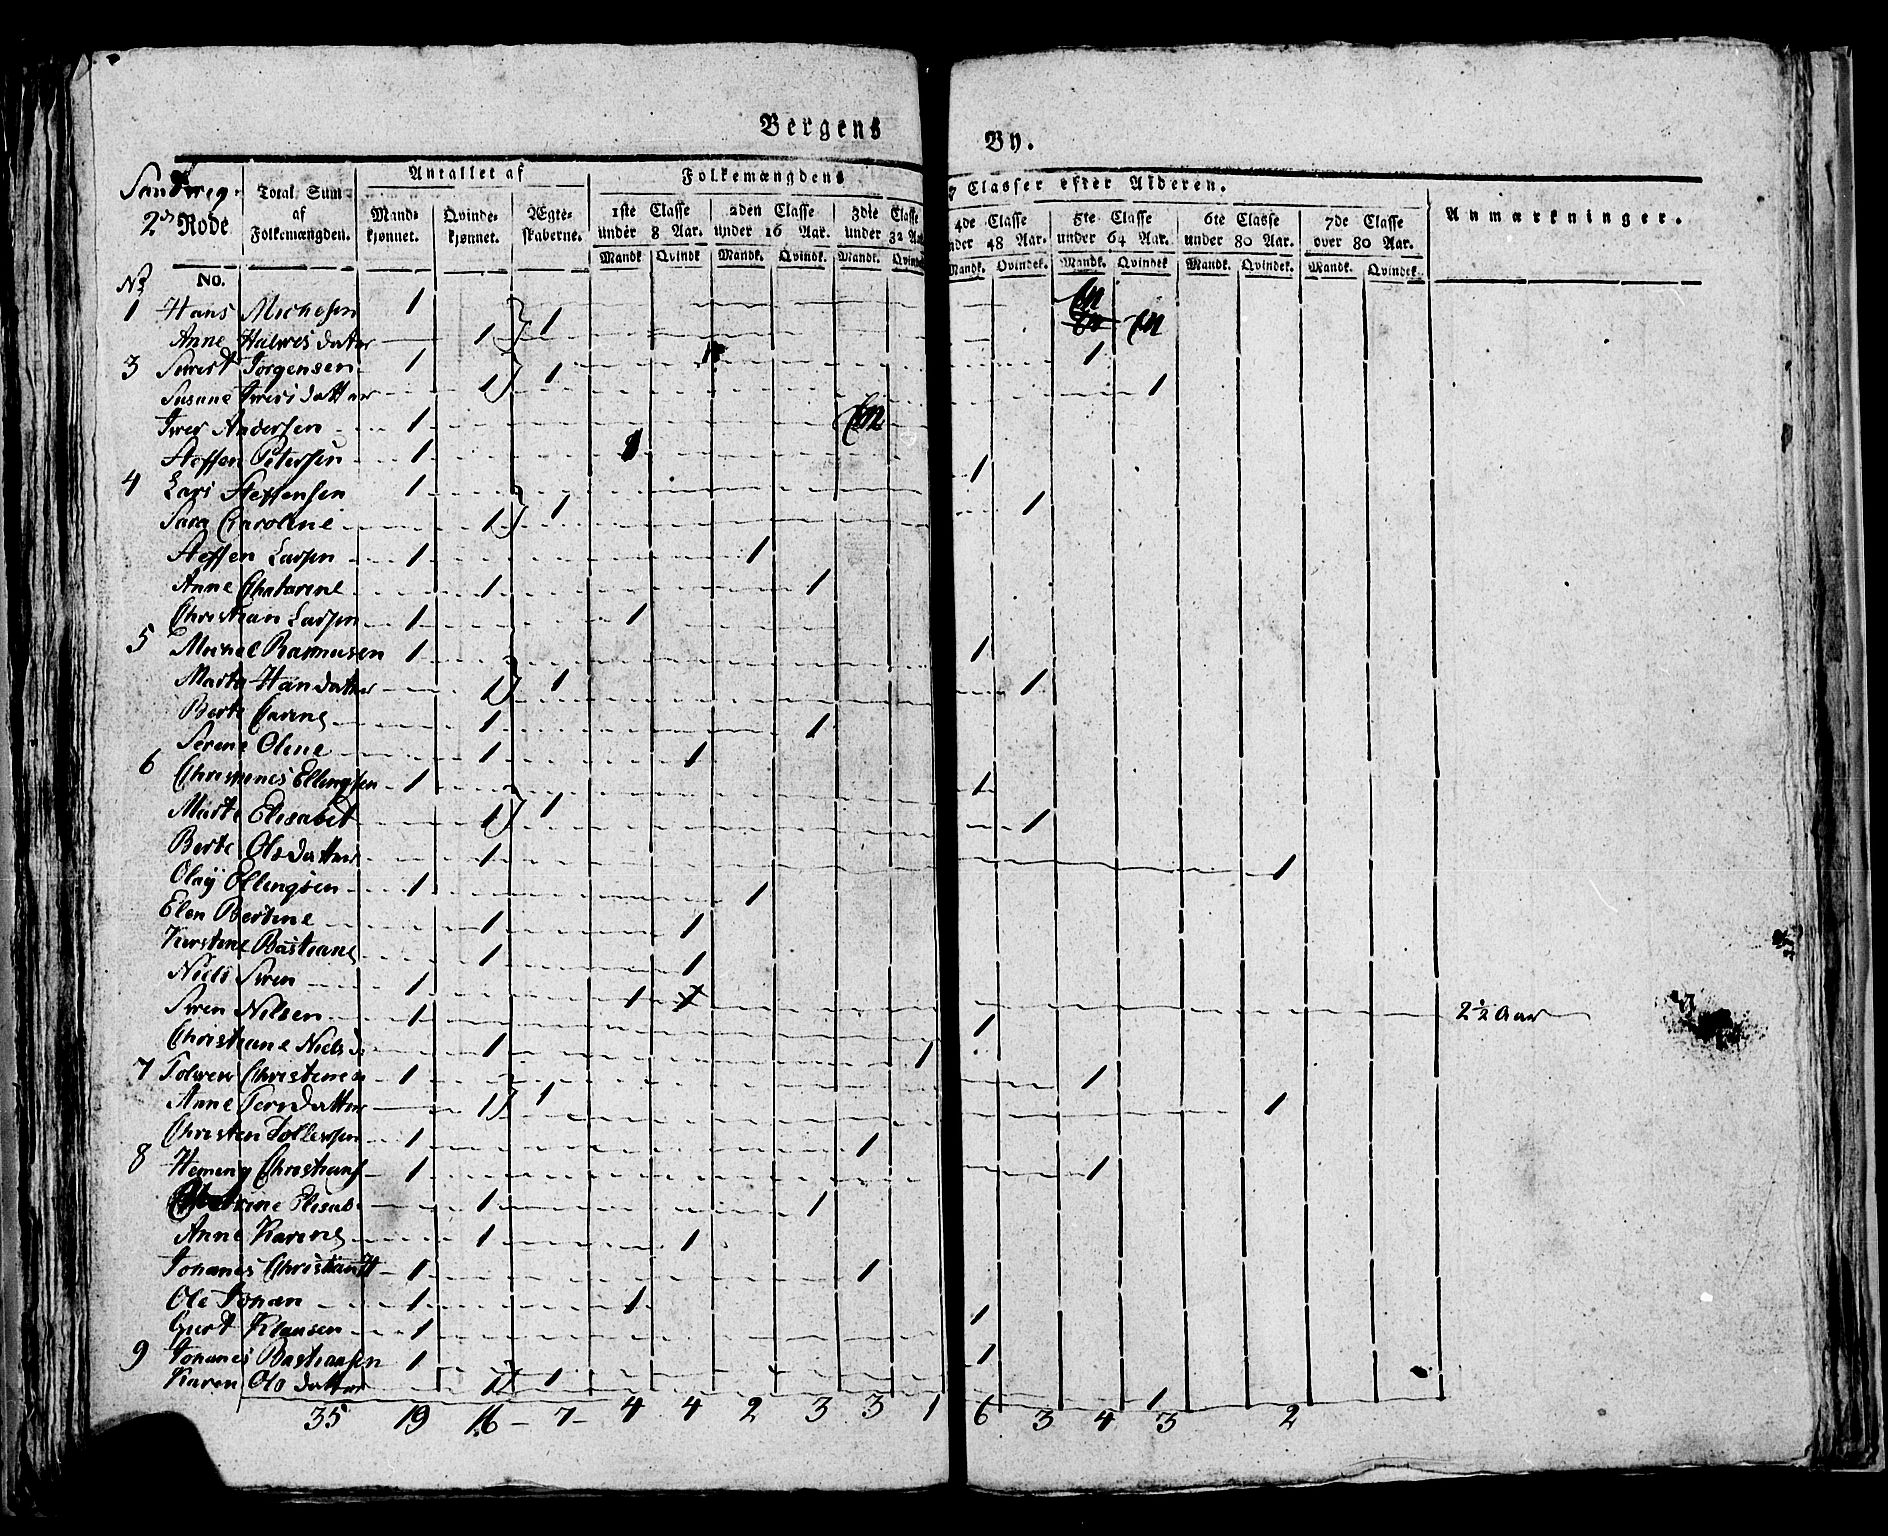 Bergens By.
Sandweg.
2den Rode
Total Sum af Folkemængden.
Antallet af
Mandkjønnet.
Qvindekjønnet.
Ægteskaberne.
Folkemængdens 7 Classer efter Alderen.
1ste Classe under 8 Aar.
2den Classe under 16 Aar.
3die Classe under 32 Aar
4de Classe under 48 Aar.
5te Classe under 64 Aar.
6te Classe under 80 Aar.
7de Classe over 80 Aar.
Anmærkninger.
Mandk. Qvindk Mandk. Qvindk. Mandk. Qvindek Mandk. Qvindek. Mandk. Qvindek Mandk. Qvindek. Mandk. Qvindek.
No No.
1 Hans Michelsen 1 1 En
Anne Halvers datter 1 En
3 Siwert Jørgensen 1 1 1
Susane Iwers datter 1 1
Iwer Andersen 1 En
Steffen Petersen 1 1
4 Lars Steffensen 1 1 1
Sara Caroline 1 1
Steffen Larsen 1 1
Anne Chatarine 1 1
Christian Larsen 1 1
5 Michel Rasmusen 1 1 1
Marta Hansdatter 1 1
Berte Carine 1 1
Serene Oline 1 1
6 Christines Ellingsen 1 1 1
Marte Elisabet 1 1
Berte Olsdatter 1 1
Olaÿ Ellingsen 1 1
Elen Bertine 1 1
Kirstine Bastiane 1 1
Niels Siren 1 1 2½ Aar
Siren Nilsen 1 1
Christiane Niels d. 1 1
7 Christensen 1 1 1
Anne datter 1 1
Christen Tollevsen 1 1
8 Heming Christians 1 1
Elisab 1 1
Anne Karine 1 1
Johanes Christian 1 1
Ole Johan 1 1
Giert Klausen 1 1
9 Johanes Bastiansen 1 1 1
Karen Ols datter 1 1
35 19 16 7 4 4 2 3 3 1 6 3 4 3 2